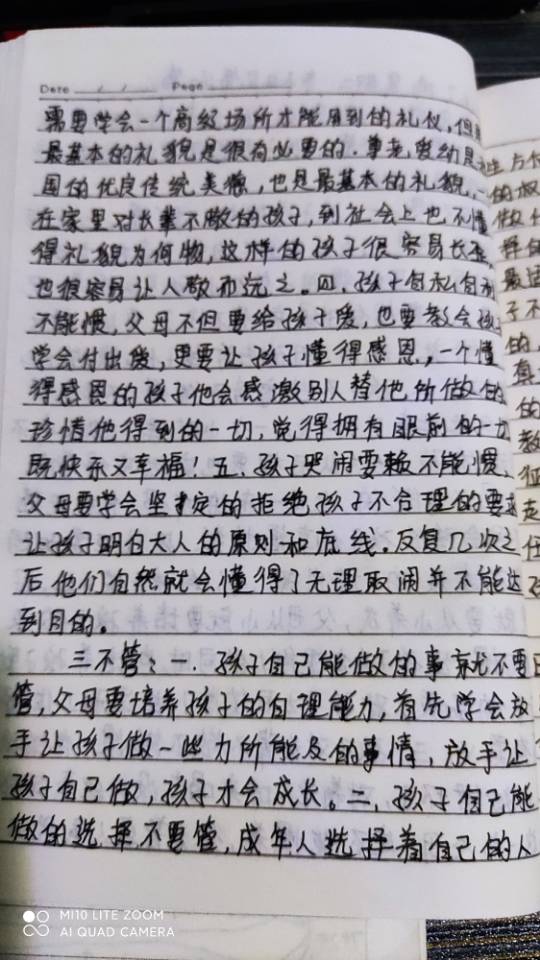 Date / / Page
需要学会一个高级场所才能用到的礼仪,但
最基本的礼貌是很有必要的.尊老爱幼是
国的优良传统美德,也是最基本的礼貌,一
在家里对长辈不敬的孩子,到社会上也不懂
得礼貌为何物,这样的孩子很容易长歪
也很容易让人敬而远之。四.孩子自私自利
不能惯,父母不但要给孩子爱,也要教会孩
学会付出爱,更要让孩子懂得感恩,一个懂
得感恩的孩子他会感激别人替他所做的
珍惜他得到的一切,觉得拥有眼前的一切
既快乐又幸福!五.孩子哭闹耍赖不能惯、
父母要学会坚定的拒绝孩子不合理的要求
让孩子明白大人的原则和底线.反复几次之
后他们自然就会懂得了无理取闹并不能达
到目的。
三不管:一.孩子自己能做的事就不要
管,父母要培养孩子的自理能力,首先学会放
手让孩子做一些力所能及的事情,放手让
孩子自己做,孩子才会成长。二.孩子自己能
做的选择不要管,成年人选择着自己的人
生
的权
做
择的
最适
子不
的
真
的
教
征
走
任
MI10 LITE ZOOM
AI QUAD CAMERA